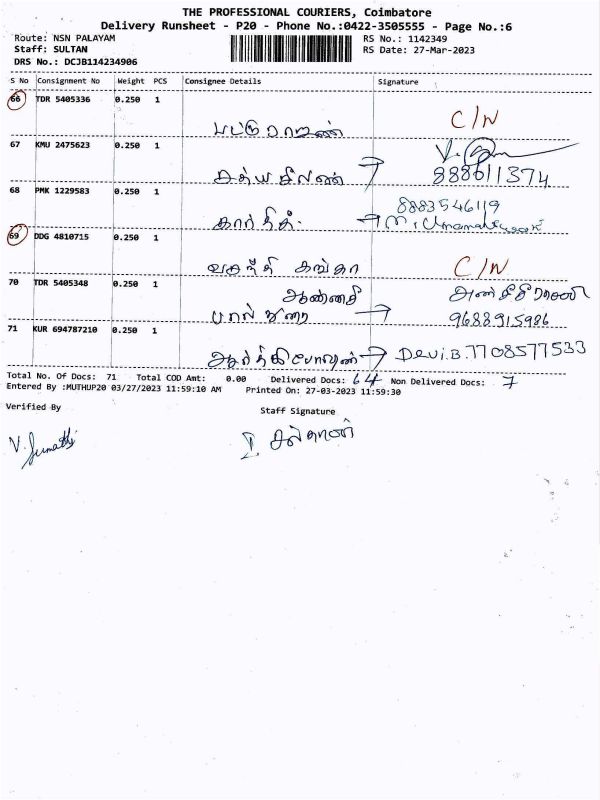 THE PROFESSIONAL COURIERS, Coimbatore
Delivery Runsheet - P20 - Phone No.:0422-3505555 - Page No.:6
Route: NSN PALAYAM RS No.: 1142349
Staff: SULTAN RS Date: 27-Mar-2023
DRS No.: DCJB114234906
S No Consignment No Weight PCS Consignee Details Signature
66 TDR 5405336 0.250 1 C/N
67 KMU 2475623 0.250 1
சத்யசீலன் → 888611374
68 PMK 1229583 0.250 1 8883546119
கார்த்திக். →
69 DDG 4810715 0.250 1
வசந்தி கங்கா C/N
70 TDR 5405348 0.250 1
பால் துரை → 9688915986
71 KUR 694787210 0.250 1
→ Devi.B. 7708577533
Total No. Of Docs: 71 Total COD Amt: 0.00 Delivered Docs: 64 Non Delivered Docs: 7
Entered By :MUTHUP20 03/27/2023 11:59:10 AM Printed On: 27-03-2023 11:59:30
Verified By Staff Signature
V. Sumathi சுல்தான்